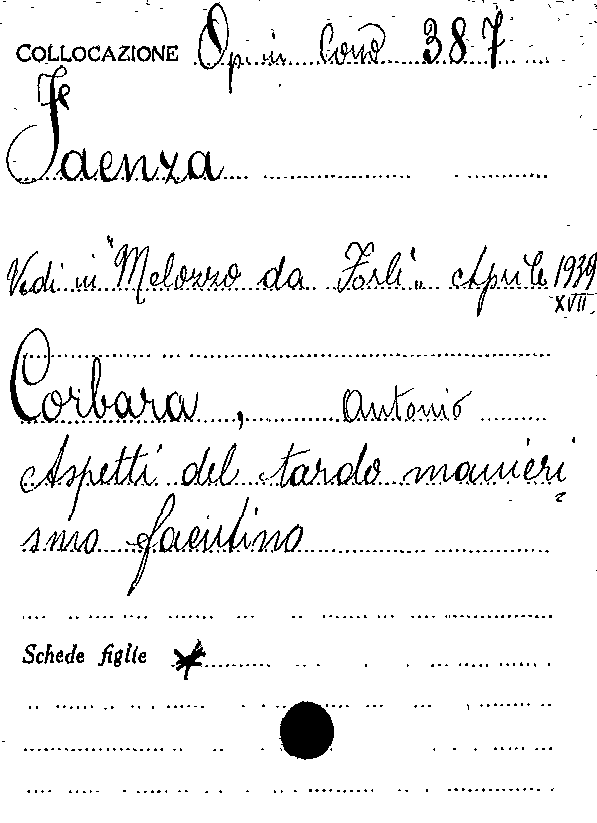 COLLOCAZIONE Op. in Cons 387
Faenza
Vedi in "Melozzo da Forlì" Aprile 1939
XVII
Corbara, Antonio
Aspetti del tardo manieri
smo faentino
Schede figlie